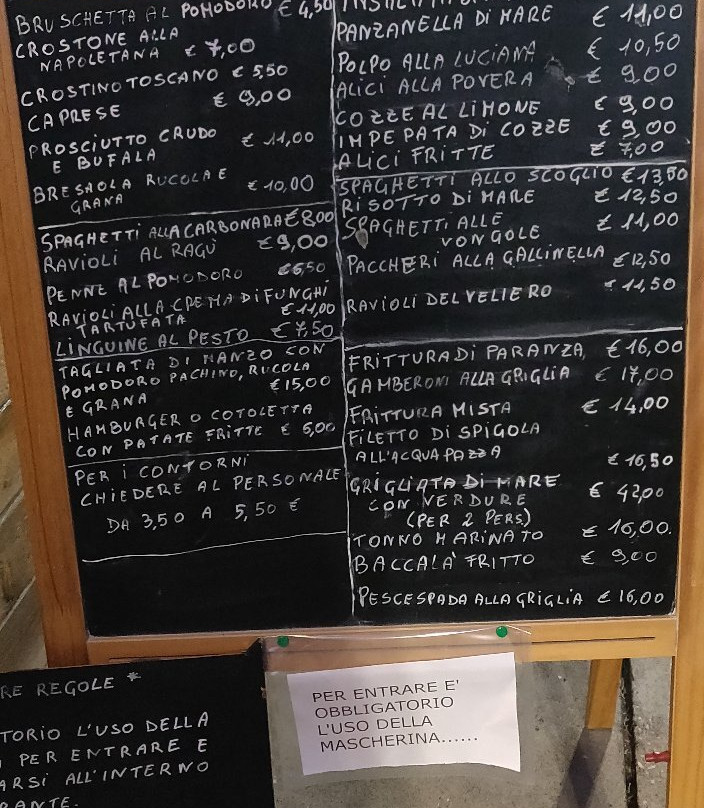 BRUSCHETTA AL POMODORO € 4,50
CROSTONE ALLA
NAPOLETANA € 7,00
CROSTINO TOSCANO € 5,50
CAPRESE € 9,00
PROSCIUTTO CRUDO
E BUFALA € 11,00
BRESAOLA RUCOLA E
GRANA € 10,00
SPAGHETTI ALLA CARBONARA € 8,00
RAVIOLI AL RAGÙ € 9,00
PENNE AL POMODORO € 6,50
RAVIOLI ALLA CREMA DI FUNGHI
TARTUFATA € 11,00
LINGUINE AL PESTO € 7,50
TAGLIATA DI MANZO CON
POMODORO PACHINO, RUCOLA
E GRANA € 15,00
HAMBURGER O COTOLETTA
CON PATATE FRITTE € 6,00
PER I CONTORNI
CHIEDERE AL PERSONALE
DA 3,50 A 5,50 €
PANZANELLA DI MARE € 11,00
POLPO ALLA LUCIANA € 10,50
ALICI ALLA POVERA € 9,00
COZZE AL LIMONE € 9,00
IMPEPATA DI COZZE € 9,00
ALICI FRITTE € 7,00
SPAGHETTI ALLO SCOGLIO € 13,50
RISOTTO DI MARE € 12,50
SPAGHETTI ALLE
VONGOLE € 11,00
PACCHERI ALLA GALLINELLA € 12,50
RAVIOLI DEL VELIERO € 11,50
FRITTURA DI PARANZA € 16,00
GAMBERONI ALLA GRIGLIA € 17,00
FRITTURA MISTA € 14,00
FILETTO DI SPIGOLA
ALL'ACQUA PAZZA € 16,50
GRIGLIATA DI MARE
CON VERDURE € 42,00
(PER 2 PERS)
TONNO MARINATO € 16,00.
BACCALÀ FRITTO € 9,00
PESCESPADA ALLA GRIGLIA € 16,00
RE REGOLE *
TORIO L'USO DELLA
PER ENTRARE E
ARSI ALL'INTERNO
RANTE.
PER ENTRARE E'
OBBLIGATORIO
L'USO DELLA
MASCHERINA......